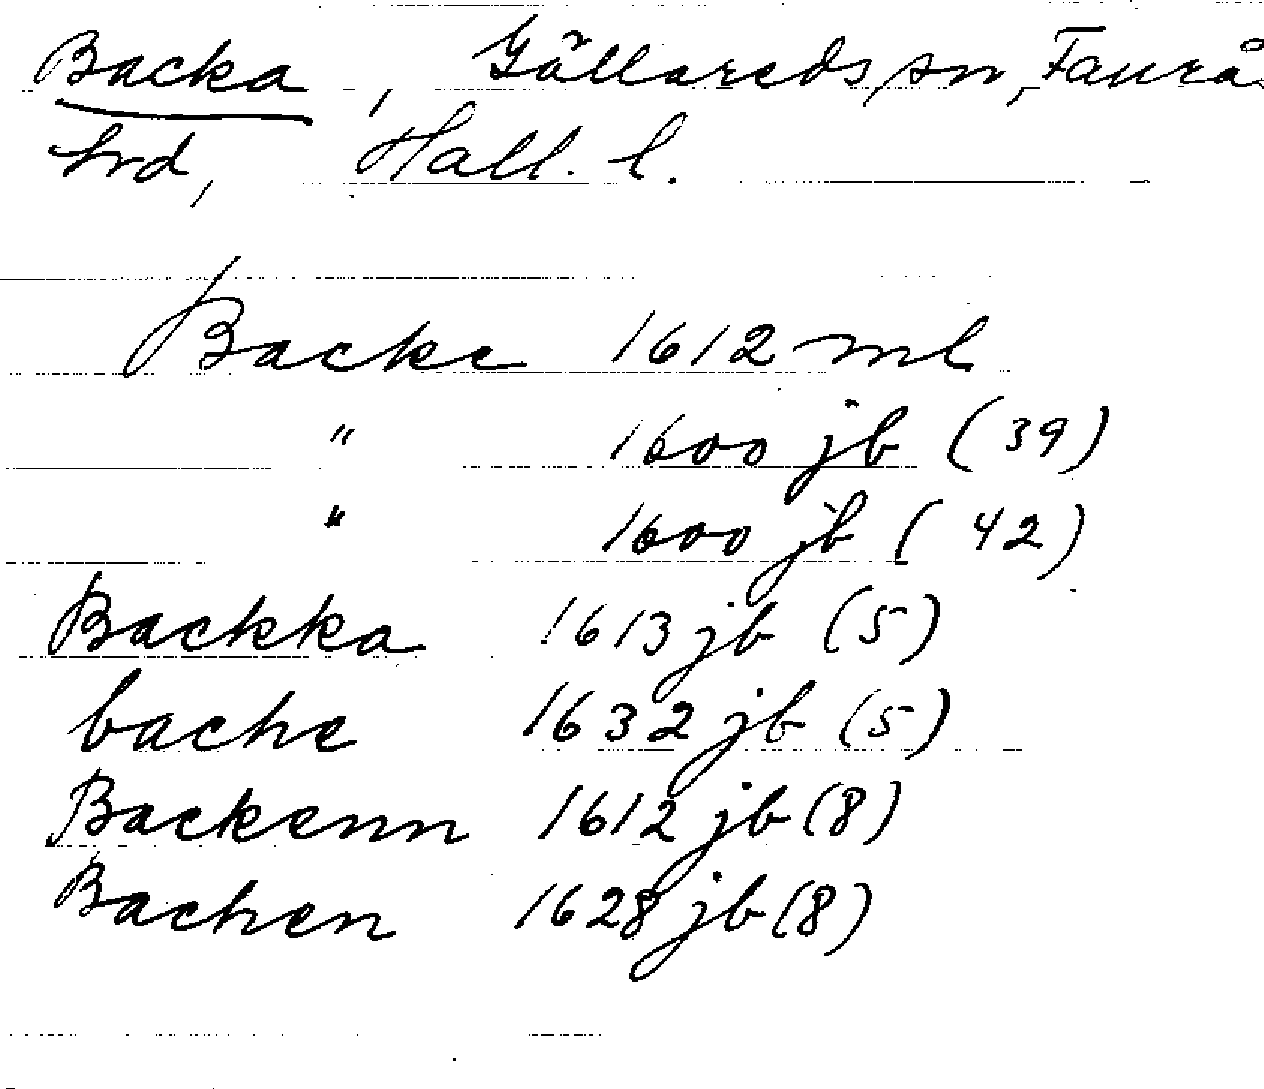 Backa, Gällareds sn, Faurå
hrd, Hall. l.
Backe 1612 ml
" 1600 jb (39)
" 1600 jb (42)
Backka 1613 jb (5)
bache 1632 jb (5)
Backenn 1612 jb (8)
Bachen 1628 jb (8)